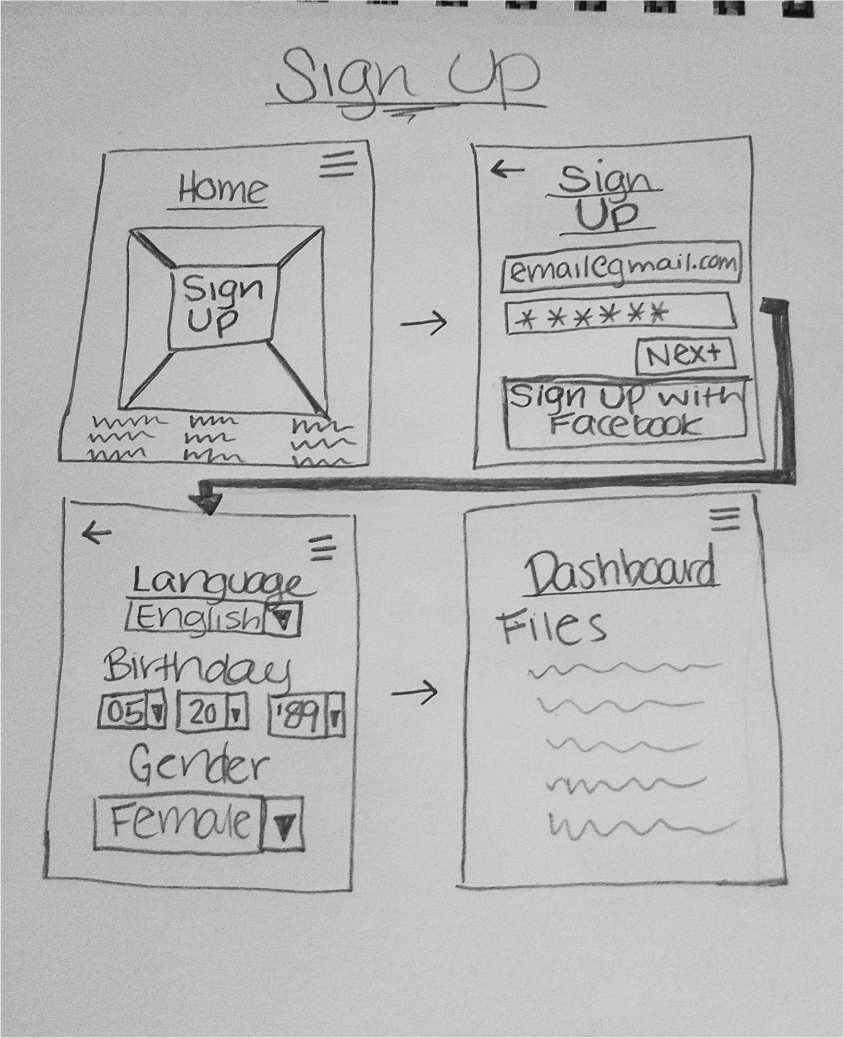 Sign Up
Home
Sign
Up
Sign
Up
email@gmail.com
******
Next
Sign Up with
Facebook
Language
English
Birthday
05 20 '89
Gender
Female
Dashboard
Files